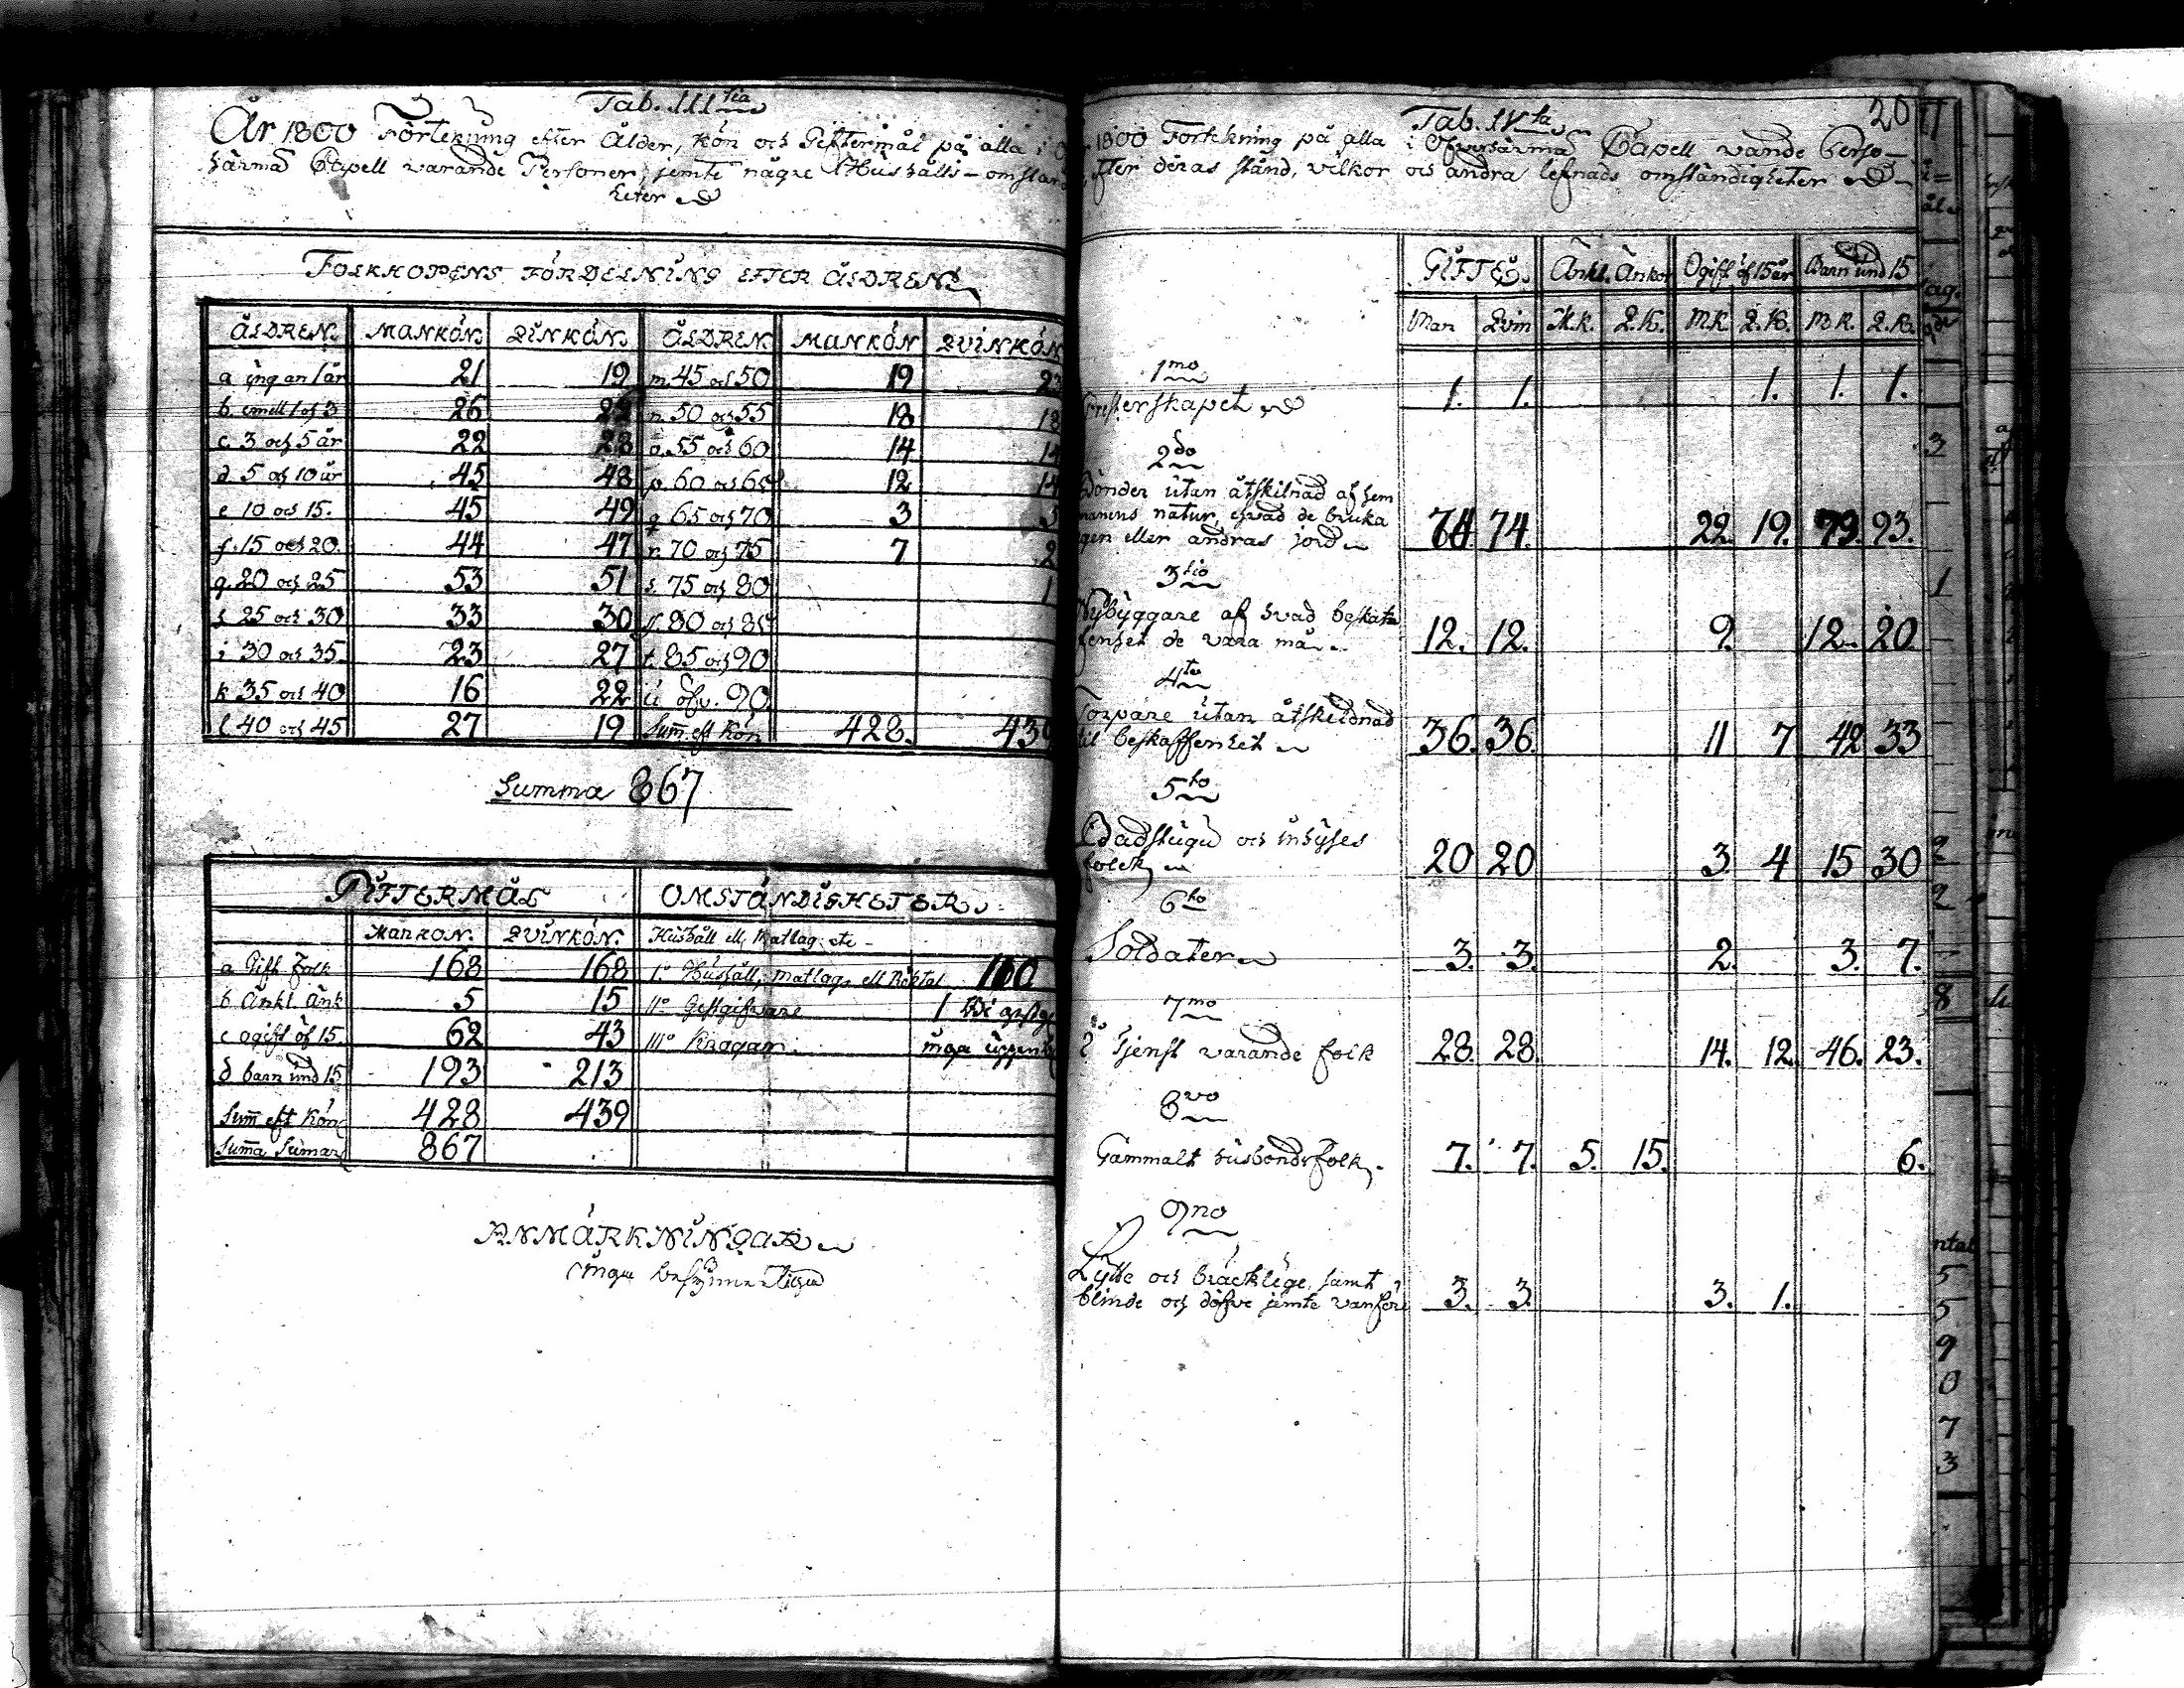 Tab. III tia
År 1800 Förtekning efter Ålder, kön och Giftermål på alla i
härma Capell varande Personer, jemte några Hushålls-omständ
heter
FOLKHOPENS FÖRDELNING EFTER ÅLDREN
ÅLDREN. MANKÖN. QVINKÖN. ÅLDREN MANKÖN QVINKÖN
a ing an 1 år 21 19 m. 45 och 50 19
b. emell 1 och 3 26 n. 50 och 55 18 18
c. 3 och 5 år 22 28 o. 55 och 60 14 14
d. 5 och 10 år 45 48 p. 60 och 65 12 14
e 10 och 15. 45 49 q 65 och 70 3 5
f. 15 och 20. 44 47 r. 70 och 75 7 2
g. 20 och 25 53 51 s. 75 och 80 1
h 25 och 30 33 30 80 och 85
i 30 och 35 23 27 t. 85 och 90
k 35 och 40 16 22 u öfv. 90
l 40 och 45 27 19 Sum. eft kön 428. 439
Summa 867
GIFTERMÅL OMSTÄNDIGHETER
Mankön. QVINKÖN. Hushåll ell. Matlag. etc
a Gift folk 168 168 I:o Hushåll, matlag ell Röktal 100
b Änkl. Änk 5 15 II:o Gestgifvare 1
c ogift öf 15. 62 43 III:o Krogar. inga
d barn und 15 193 213
Sum eft kön 428 439
Suma Sumar 867
ANMÄRKNINGAR
Inga besynnerliga
20
Tab. IV ta
1800 Förtekning på alla i Öfversärma Capell varande Perso-
efter deras stånd, vilkor och andra lefnads omständigheter
GIFTE. Änkl. Änkor Ogift öf 15 år Barn und 15
Man Qvin M.K. Q.K. M.K. Q.K. M.K. Q.K.
1mo
Presterskapet 1. 1. 1. 1. 1.
2do
Bönder utan åtskilnad af hem
manens natur, ehvad de bruka
egen eller andras jord 74 74. 22. 19. 79. 93.
3tio
Nybyggare af hvad beskaf
fenhet de vara må 12. 12. 9. 12. 20.
4to
Torpare utan åtskildnad
til beskaffenhet 36. 36. 11 7 42 33
5to
Badstugu och inhyses
folck 20 20 3 4 15 30
6to
Soldater 3. 3. 2. 3. 7.
7mo
I Tjenst varande folk 28. 28. 14. 12. 46. 23.
8vo
Gammalt husbondsfolk. 7. 7. 5. 15. 6.
9no
Lytte och bräcklige, samt
blinde och döfve jemte vanföre 3. 3. 3. 1.